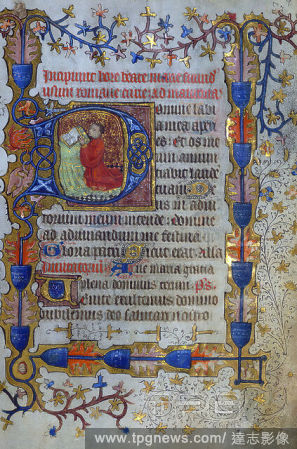 hore beate marie
usum romane curie ad
omine labi
a mea aperi
es Et os me
um annun
laude
tuam De
us in adiu
torium meum intende Domine
ad adiuvandum me festina
Gloria patri Sicut erat Alla
Ave maria gracia
plena dominus tecum ps
Venite exultemus domino
iubilemus deo salutari nostro
www.tpgnews.com/ 達志影像